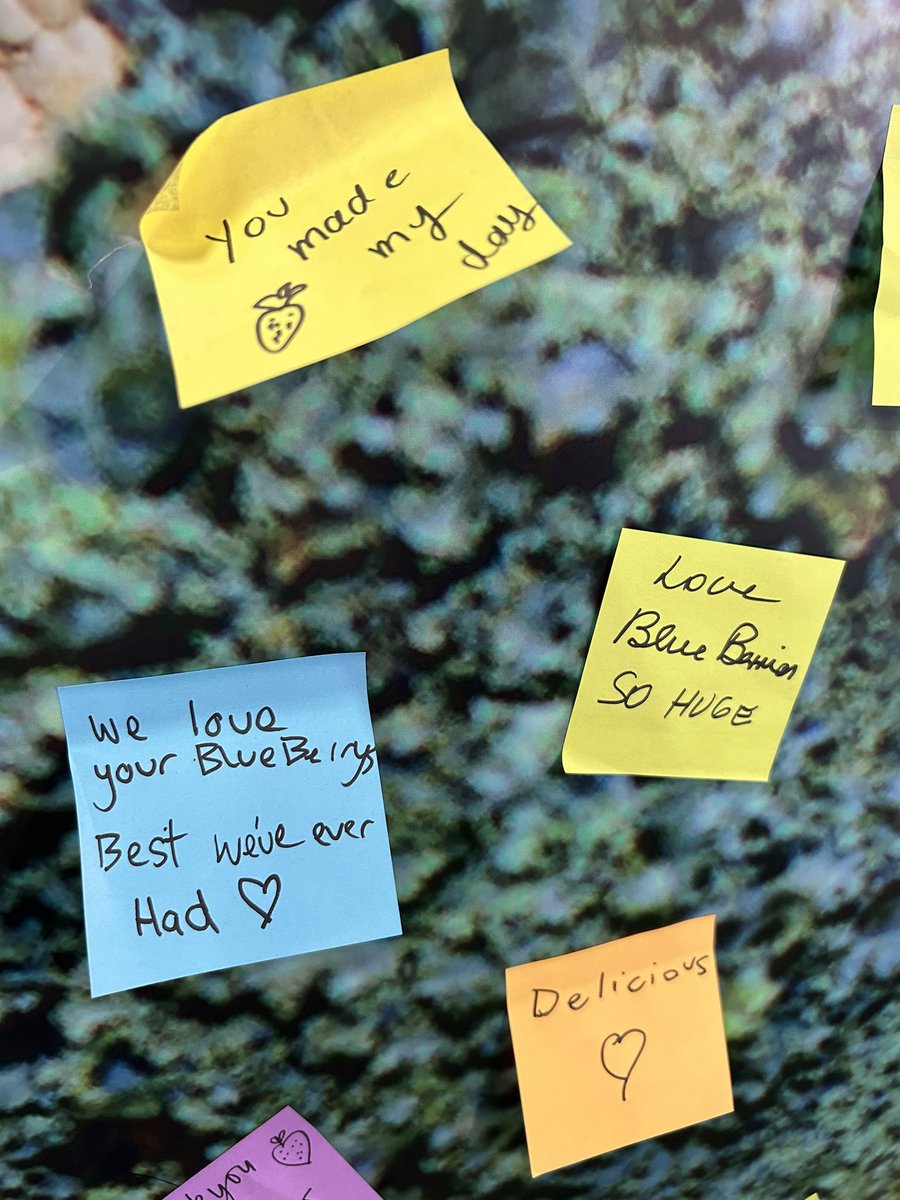 You made my day
Love
Blue Berries
SO HUGE
We love
your BlueBerrys
Best we've ever
Had
Delicious